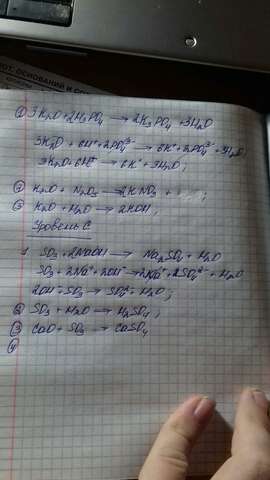 ОСНОВАНИЙ И СО
① 3K₂O + 2H₃PO₄ → 2K₃PO₄ + 3H₂O
3K₂O + 6H⁺ + 2PO₄³⁻ → 6K⁺ + 2PO₄³⁻ + 3H₂O;
3K₂O + 6H⁺ → 6K⁺ + 3H₂O;
② K₂O + N₂O₅ → 2KNO₃
③ K₂O + H₂O → 2KOH;
Уровень С
1 SO₃ + 2NaOH → Na₂SO₄ + H₂O
SO₃ + 2Na⁺ + 2OH⁻ → 2Na⁺ + 2SO₄²⁻ + H₂O
2OH⁻ + SO₃ → SO₄²⁻ + H₂O;
② SO₃ + H₂O → H₂SO₄;
③ CaO + SO₃ → CaSO₄
④